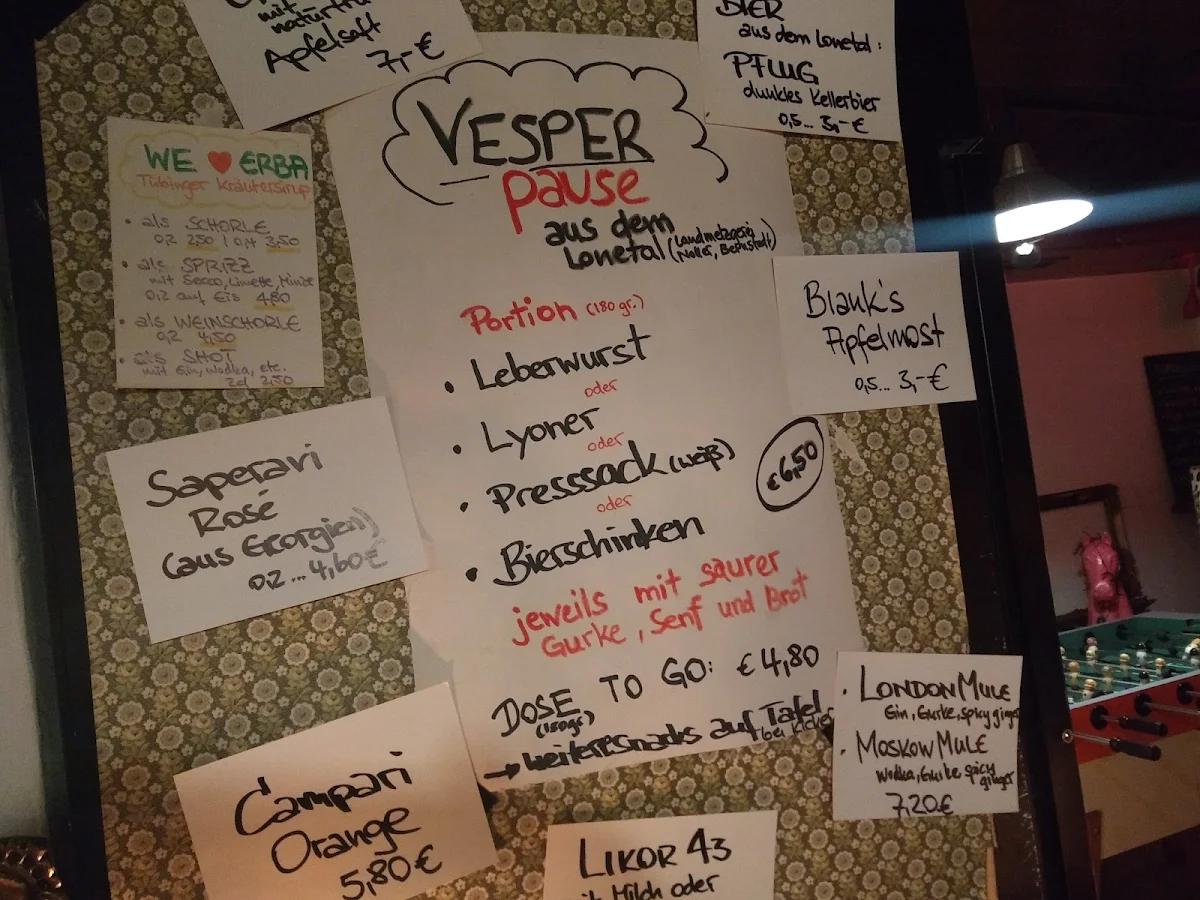 mit
naturtrü
Apfelsaft
7,-€
BIER
aus dem Lonetal:
PFLUG
dunkles Kellerbier
0,5... 3,-€
WE ♥ ERBA
Tübinger Kräutersirup
• als SCHORLE
0,2 2,50 | 0,4 3,50
• als SPRIZZ
mit Secco, Limette, Minze
0,2 auf Eis 4,80
• als WEINSCHORLE
0,2 4,50
• als SHOT
mit Gin, Wodka, etc.
2cl 2,50
VESPER
pause
aus dem
Lonetal (Landmetzgerei
Portion (180 gr.)
• Leberwurst
oder
• Lyoner
oder
• Presssack (weiß)
oder
• Bierschinken
€6,50
jeweils mit saurer
Gurke, Senf und Brot
DOSE TO GO: € 4,80
(180gr)
→ weitere Snacks auf Tafel
bei Kicker
Blank's
Apfelmost
0,5... 3,-€
Saperavi
Rosé
(aus Georgien)
0,2 ... 4,60€
Campari
Orange
5,80€
LIKOR 43
Milch oder
• LONDON MULE
Gin, Gurke, spicy ginger
• MOSKOW MULE
Wodka, Gurke spicy
ginger
7,20€